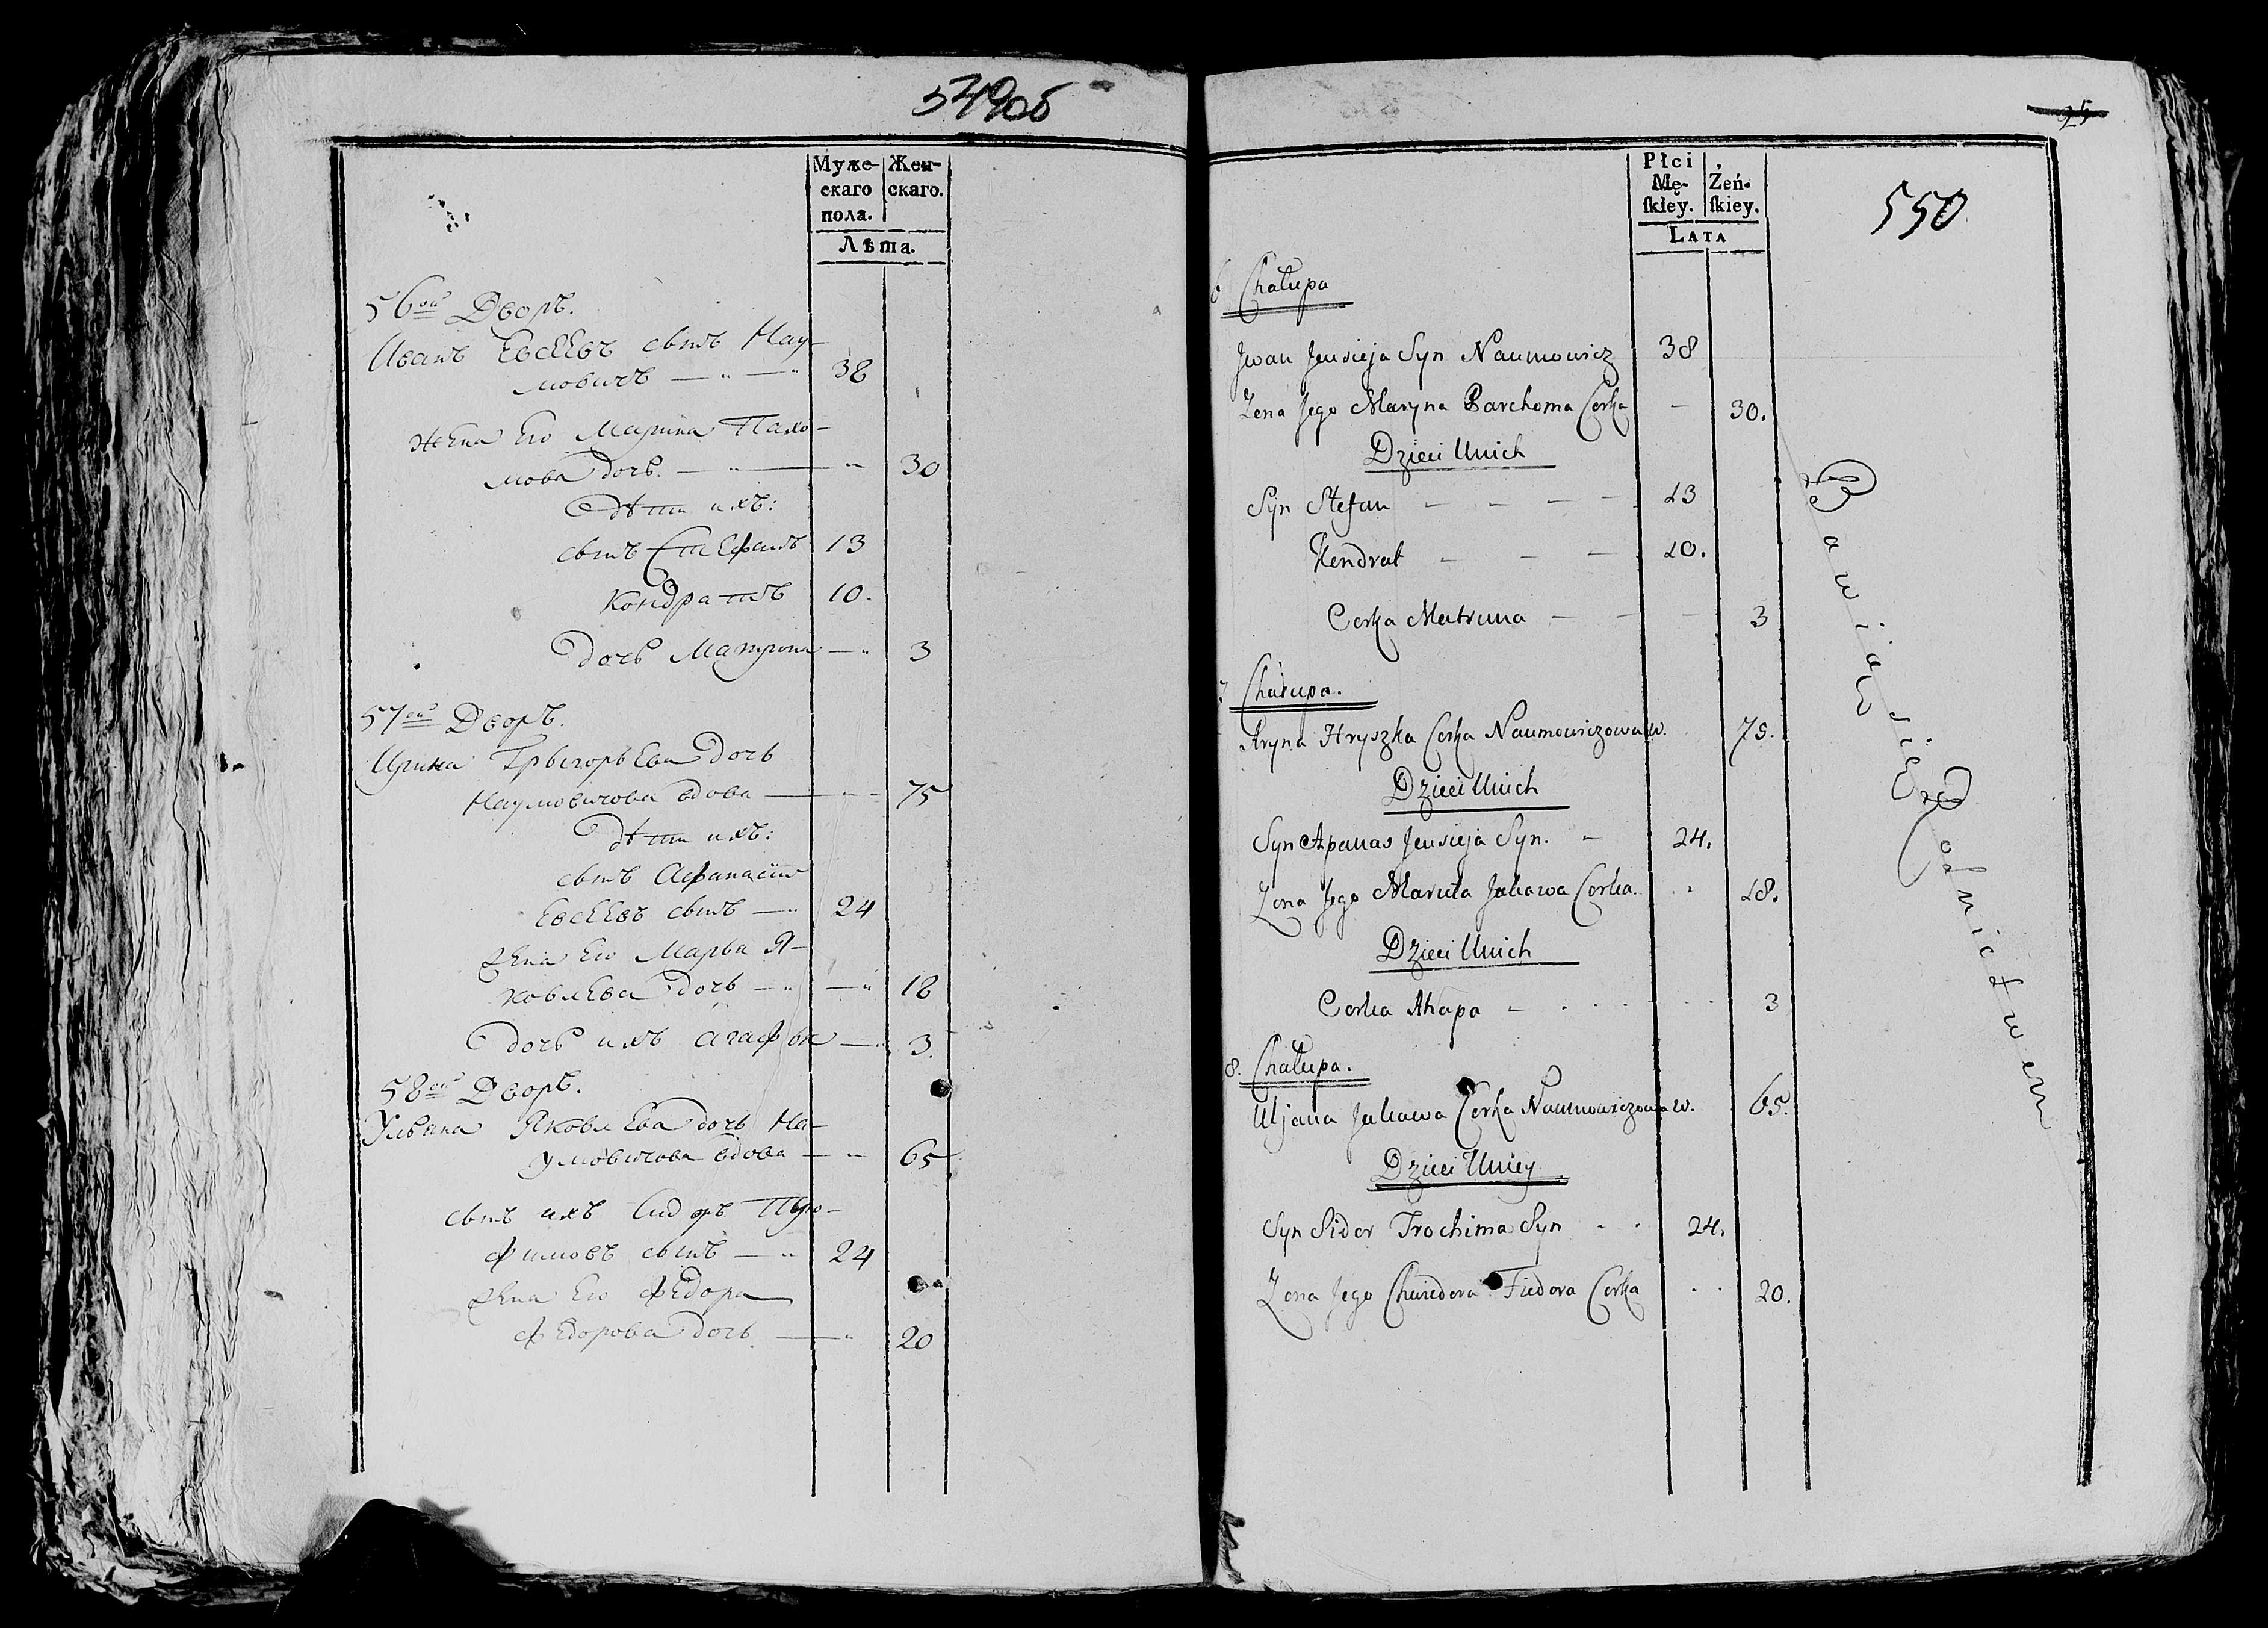 549об
Муже-
скаго
пола.
Жен-
скаго.
Лѣта.
56ой Дворъ.
Иванъ Евсеевъ сынъ Нау-
мовичъ — " — " 38
жена Его Марина Пахо-
мова дочь — " — " 30
Дѣти ихъ:
сынъ Стефанъ 13
Кондратъ 10.
Дочь Матрона — " 3
57ой Дворъ.
Ирина Грыгорьева Дочь
Наумовичова вдова — " 75
Дѣти ихъ:
сынъ Афанасiй
Евсеевъ сынъ — " 24
жена Его Марья Я-
ковлева Дочь — " — " 18
Дочь ихъ Агафья — " 3.
58ой Дворъ.
Ульяна Яковлева дочь На-
умовичова вдова — " 65
сынъ ихъ Сидоръ Тро-
фимовъ сынъ — " 24
жена Его Федора
Федорова Дочь — " 20
25
550
Płci
Mę-
ſkiey.
Żeń-
ſkiey.
LATA
6 Chałupa
Jwan Jewsieja Syn Naumowicz 38
Zena Jego Maryna Parchoma Corka – 30.
Dzieci Unich
Syn Stefan – – – – 13
Kendrat – – – 10.
Corka Matruna – – – 3
7 Chałupa.
Aryna Hryszka Corka Naumowiczowa w. 75.
Dzieci Unich
Syn Apanas Jewsieja Syn. – 24.
Zona Jego Maruta Jakawa Corka. 18.
Dzieci Unich
Corka Ahapa – 3
8. Chałupa.
Uljana Jakawa Corka Naumowiczowa w. 65.
Dzieci Uniey
Syn Sidor Trochima Syn 24.
Zona Jego Chwiedora Fiedora Corka 20.
Bawiąc się Rolnictwem